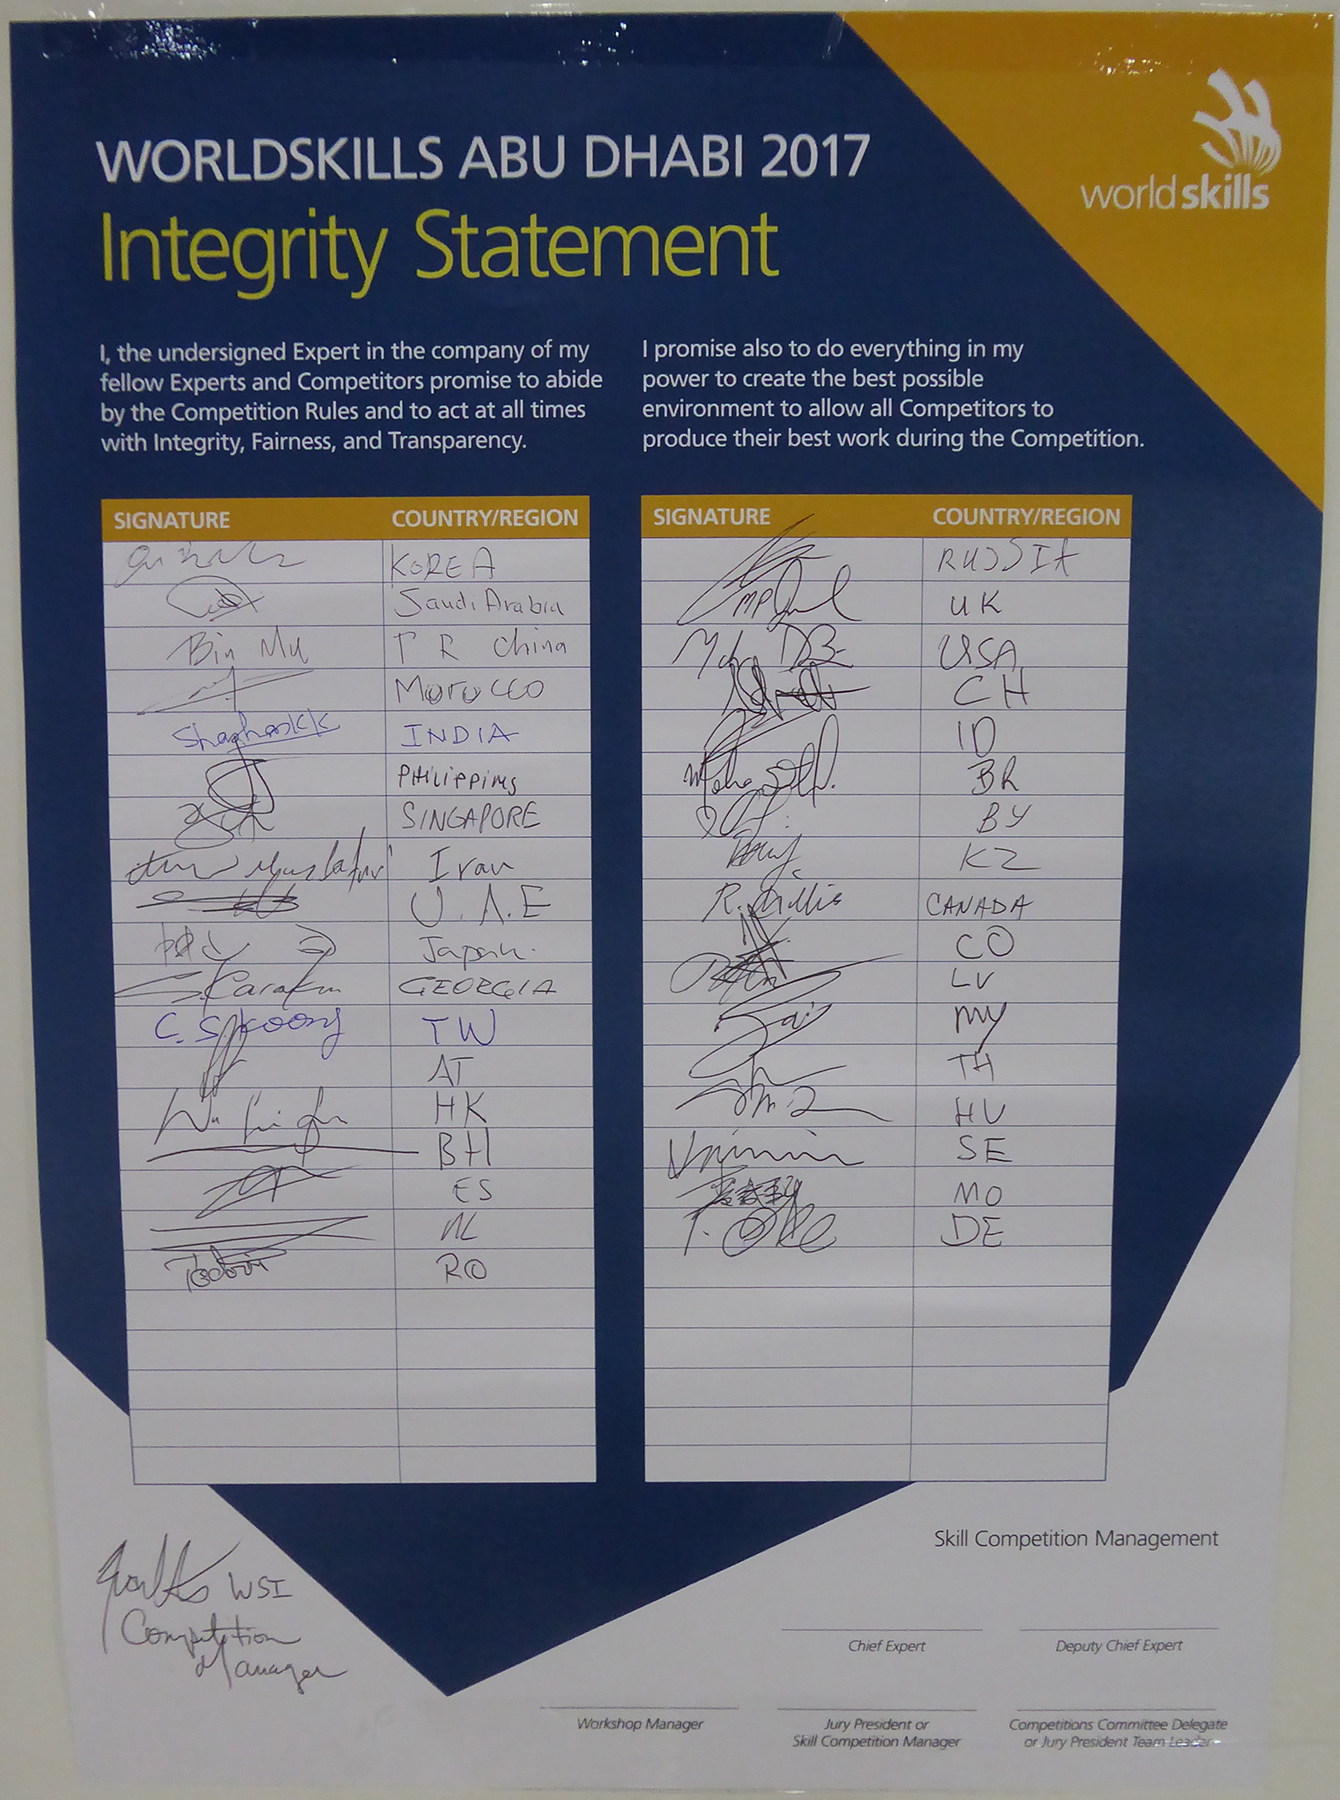 WORLDSKILLS ABU DHABI 2017
Integrity Statement
world skills
I, the undersigned Expert in the company of my
fellow Experts and Competitors promise to abide
by the Competition Rules and to act at all times
with Integrity, Fairness, and Transparency.
I promise also to do everything in my
power to create the best possible
environment to allow all Competitors to
produce their best work during the Competition.
SIGNATURE COUNTRY/REGION
KOREA
Saudi Arabia
Bin Mu P R China
Morocco
INDIA
PHILIPPINES
SINGAPORE
Iran
U.A.E
Japan.
GEORGIA
C. S. Koong TW
AT
HK
BH
ES
NL
RO
SIGNATURE COUNTRY/REGION
RUSSIA
UK
USA
CH
ID
BR
BY
KZ
R. CANADA
CO
LV
MY
TH
HU
SE
MO
DE
WSI
Competition
Manager
Skill Competition Management
Chief Expert
Deputy Chief Expert
Workshop Manager
Jury President or
Skill Competition Manager
Competitions Committee Delegate
or Jury President Team Leader